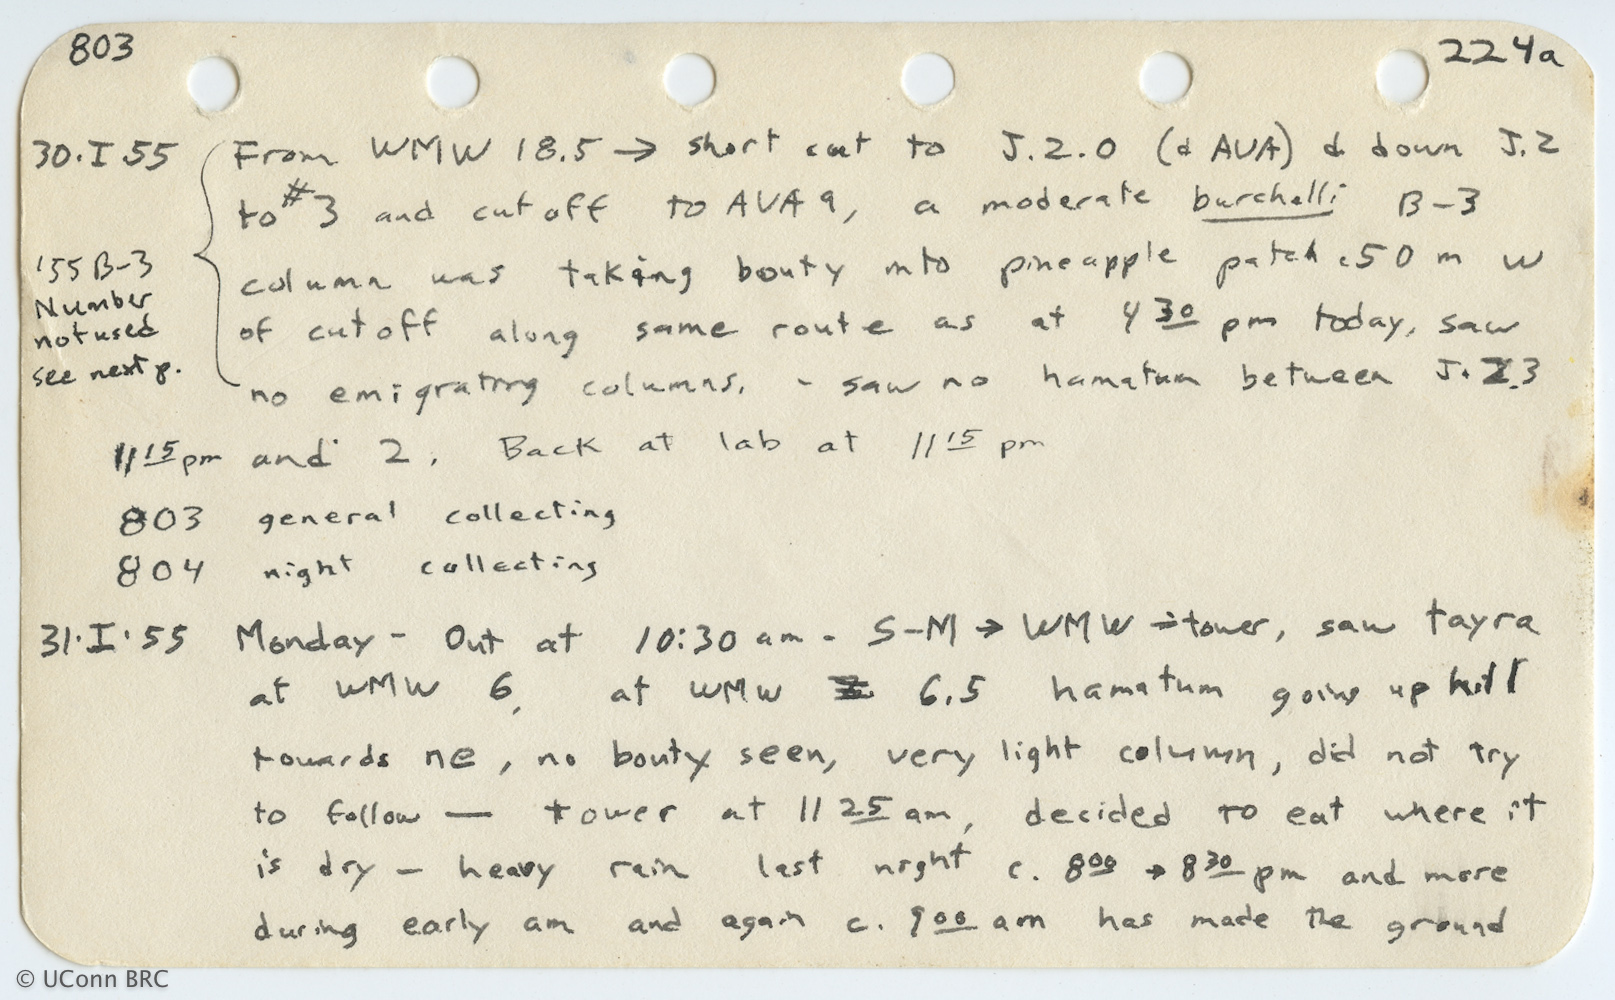 803
224a
30.I 55 From WMW 18.5 → short cut to J.2.0 (& AVA) & down J.2
to #3 and cut off to AVA 9, a moderate burchelli B-3
'55 B-3 column was taking bouty into pineapple patch c50 m w
Number of cutoff along same route as at 4 30 pm today, saw
not used
see next p. no emigrating columns. - saw no hamatum between J.2.3
11 15 pm and 2. Back at lab at 11 15 pm
803 general collecting
804 night collecting
31.I.55 Monday - Out at 10:30 am - S-M → WMW → tower, saw tayra
at WMW 6, at WMW 6.5 hamatum going up hill
towards ne, no bouty seen, very light column, did not try
to follow — tower at 11 25 am, decided to eat where it
is dry - heavy rain last night c. 8 00 → 8 30 pm and more
during early am and again c. 9 00 am has made the ground
© UConn BRC